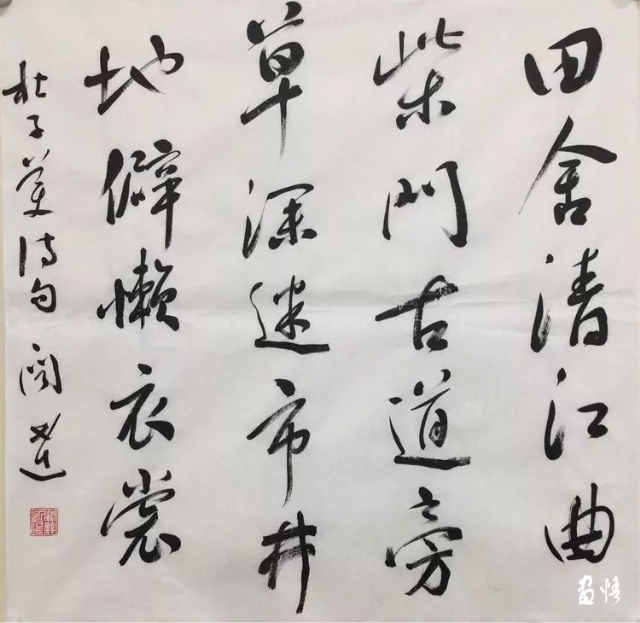 田舍清江曲
柴門古道旁
草深迷市井
地僻懶衣裳
杜子美詩句